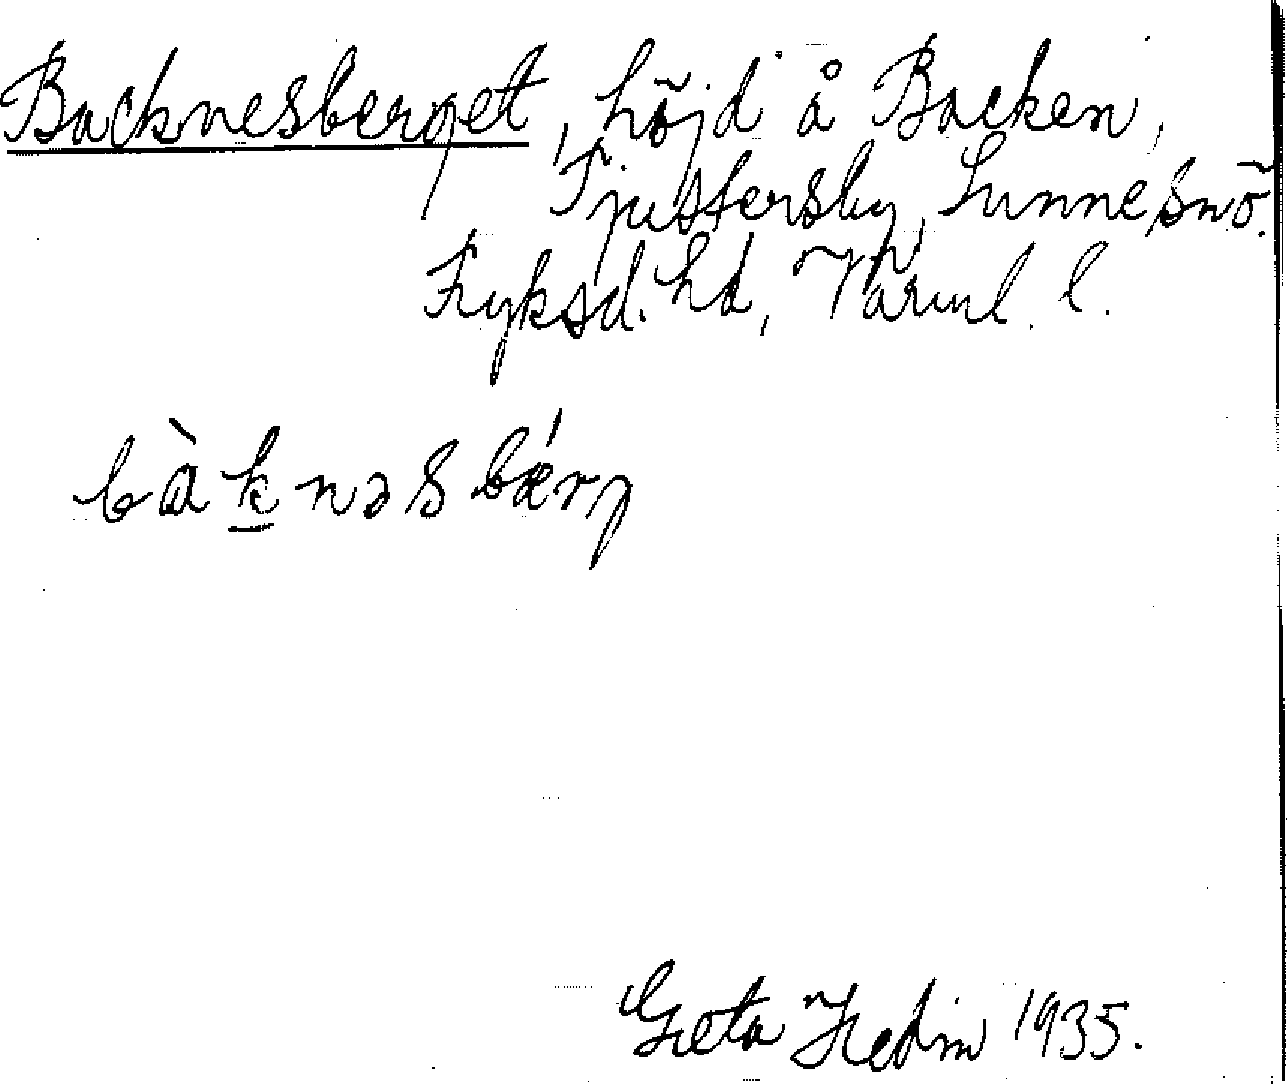 Backnesberget, höjd å Backen,
Tjustersby, Sunne snö.
Fryksd. hd, Värml. l.
bàk̲nəsbǽrg
Greta Hedin 1935.